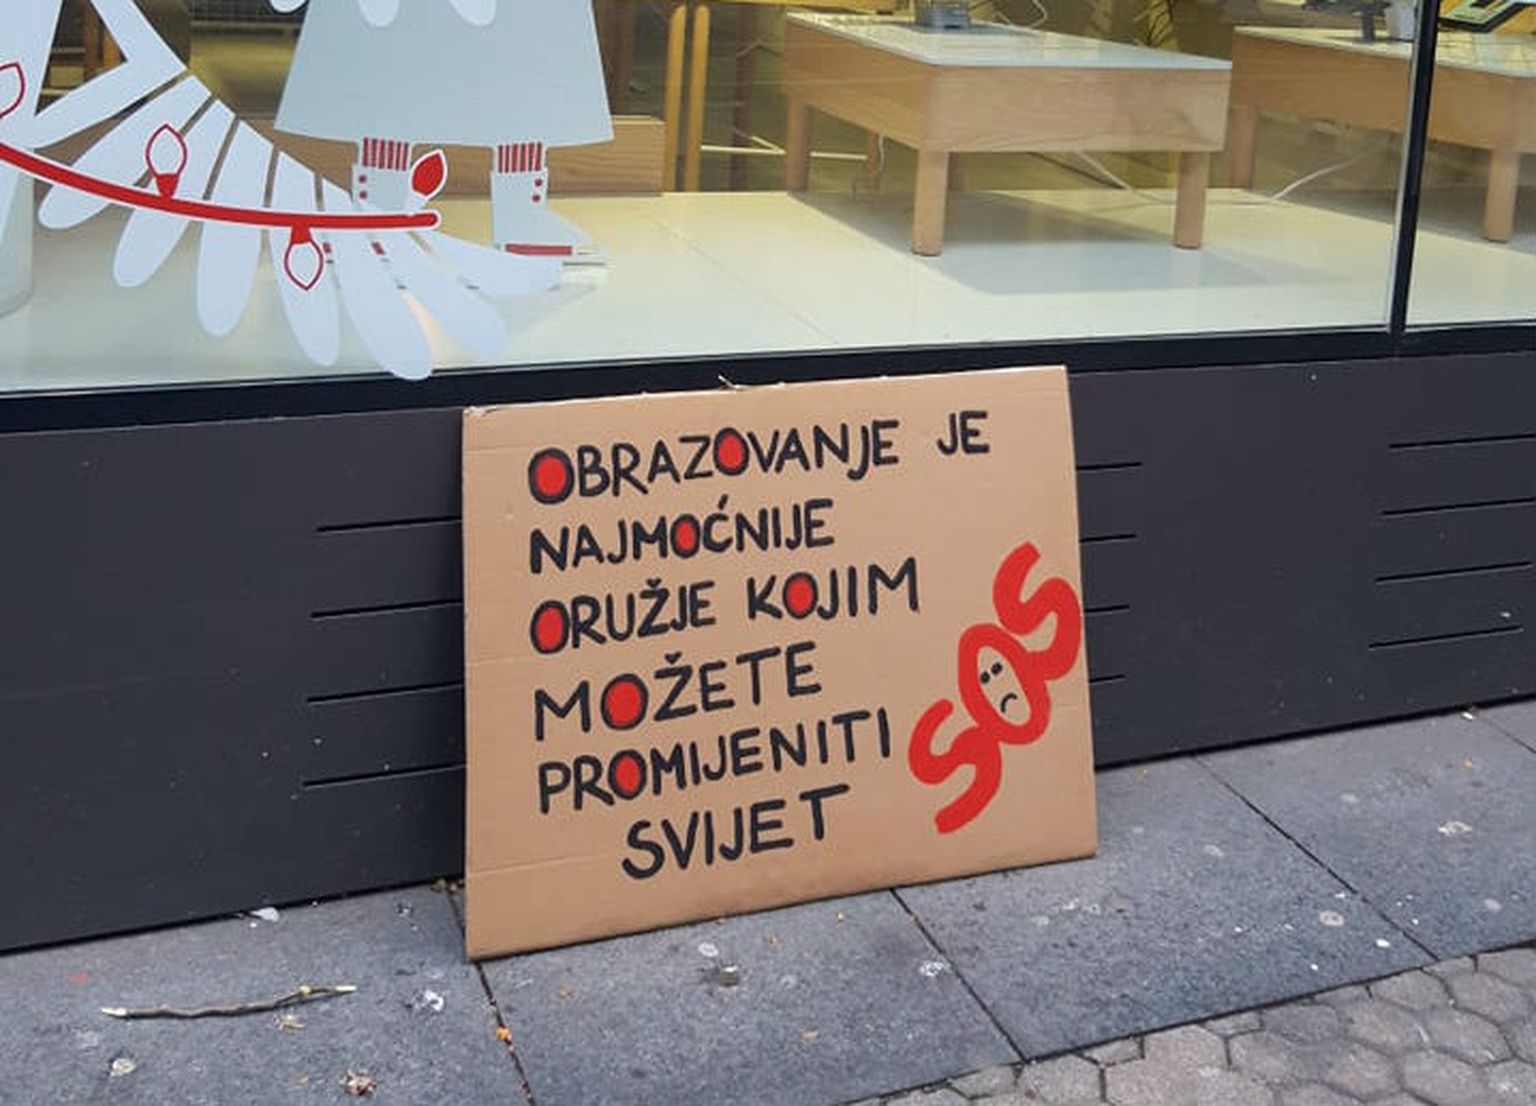 OBRAZOVANJE JE
NAJMOĆNIJE
ORUŽJE KOJIM
MOŽETE
PROMIJENITI
SVIJET
SOS